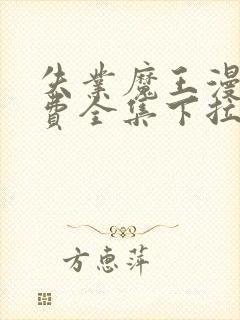 失业魔王漫
费全集下拉
方惠萍